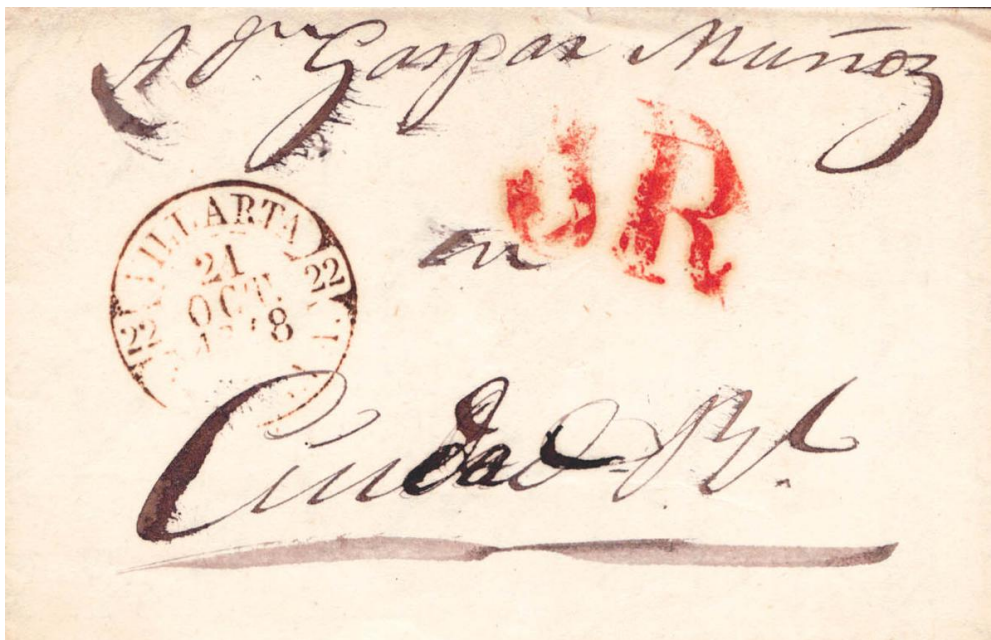 A Dn Gaspar Muñoz
R
en
VILLARTA
22 22
21
OCT.
Ciudad Rl.